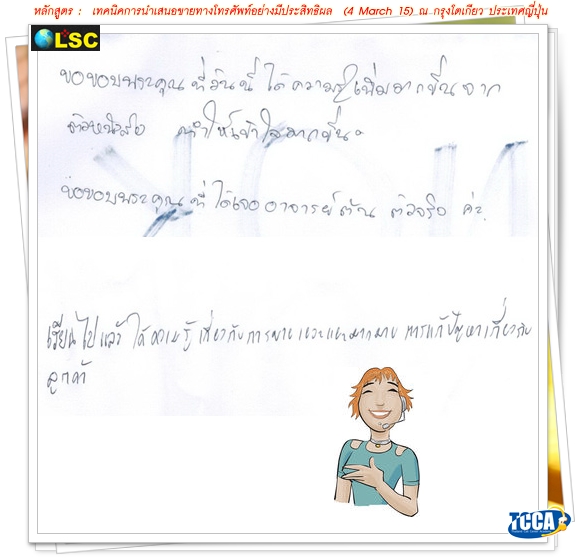 หลักสูตร : เทคนิคการนำเสนอขายทางโทรศัพท์อย่างมีประสิทธิผล (4 March 15) ณ กรุงโตเกียว ประเทศญี่ปุ่น
LSC
ขอขอบพระคุณ ที่วันนี้ ได้ความรู้เพิ่มมากขึ้นจาก
ตัวหนังสือ ทำให้เข้าใจมากขึ้น
ขอขอบพระคุณ ที่ได้เจออาจารย์ ตัวจริง ค่ะ
เรียนไปแล้ว ได้ความรู้เกี่ยวกับการขาย มากมาย การแก้ปัญหาเกี่ยวกับ
ลูกค้า
TCCA